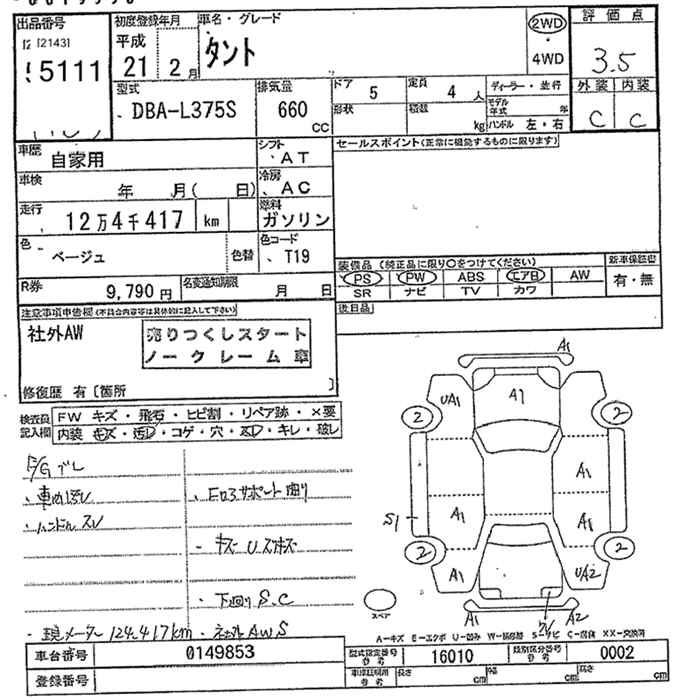 出品番号 初度登録年月 車名・グレード 2WD 評価点
[2143] 平成 タント 4WD 3.5
5111 21 2月
型式 排気量 ドア 5 定員 4人 ディーラー・並行 外装 内装
DBA-L375S 660 CC 形状 積載 kg モデル年式 年 C C
ハンドル 左・右
車歴 自家用 シフト AT セールスポイント(正常に機能するものに限ります)
車検 年 月( 日) 冷房 AC
走行 12万4千417 km 燃料 ガソリン
色 ベージュ 色替 色コード T19
装備品(純正品に限り○をつけてください) 新車保証書
PS PW ABS エアB AW 有・無
SR ナビ TV カワ
R券 9,790円 名変通知期限 月 日
後日品
注意事項申告欄(不具合内容等は具体的に記入して下さい)
社外AW 売りつくしスタート
ノークレーム車
修復歴 有〔箇所 〕
検査員記入欄 FW キズ・飛石・ヒビ割・リペア跡・×要
内装 キズ・汚レ・コゲ・穴・スレ・キレ・破レ
E/Gブレ
・ハンドルスレ
・下回りS.C
・現メーター124,417km ・社外AWS
A1
UA1 A1
2 2
A1
S1 A1 A1
2 2
A1 UA2
A1 A2
スペア
A-キズ E-エクボ U-凹み W-補修跡 S-サビ C-腐食 XX-交換済
車台番号 0149853 型式指定番号 16010 類別区分番号 0002
登録番号 長さ cm 幅 cm 高さ cm